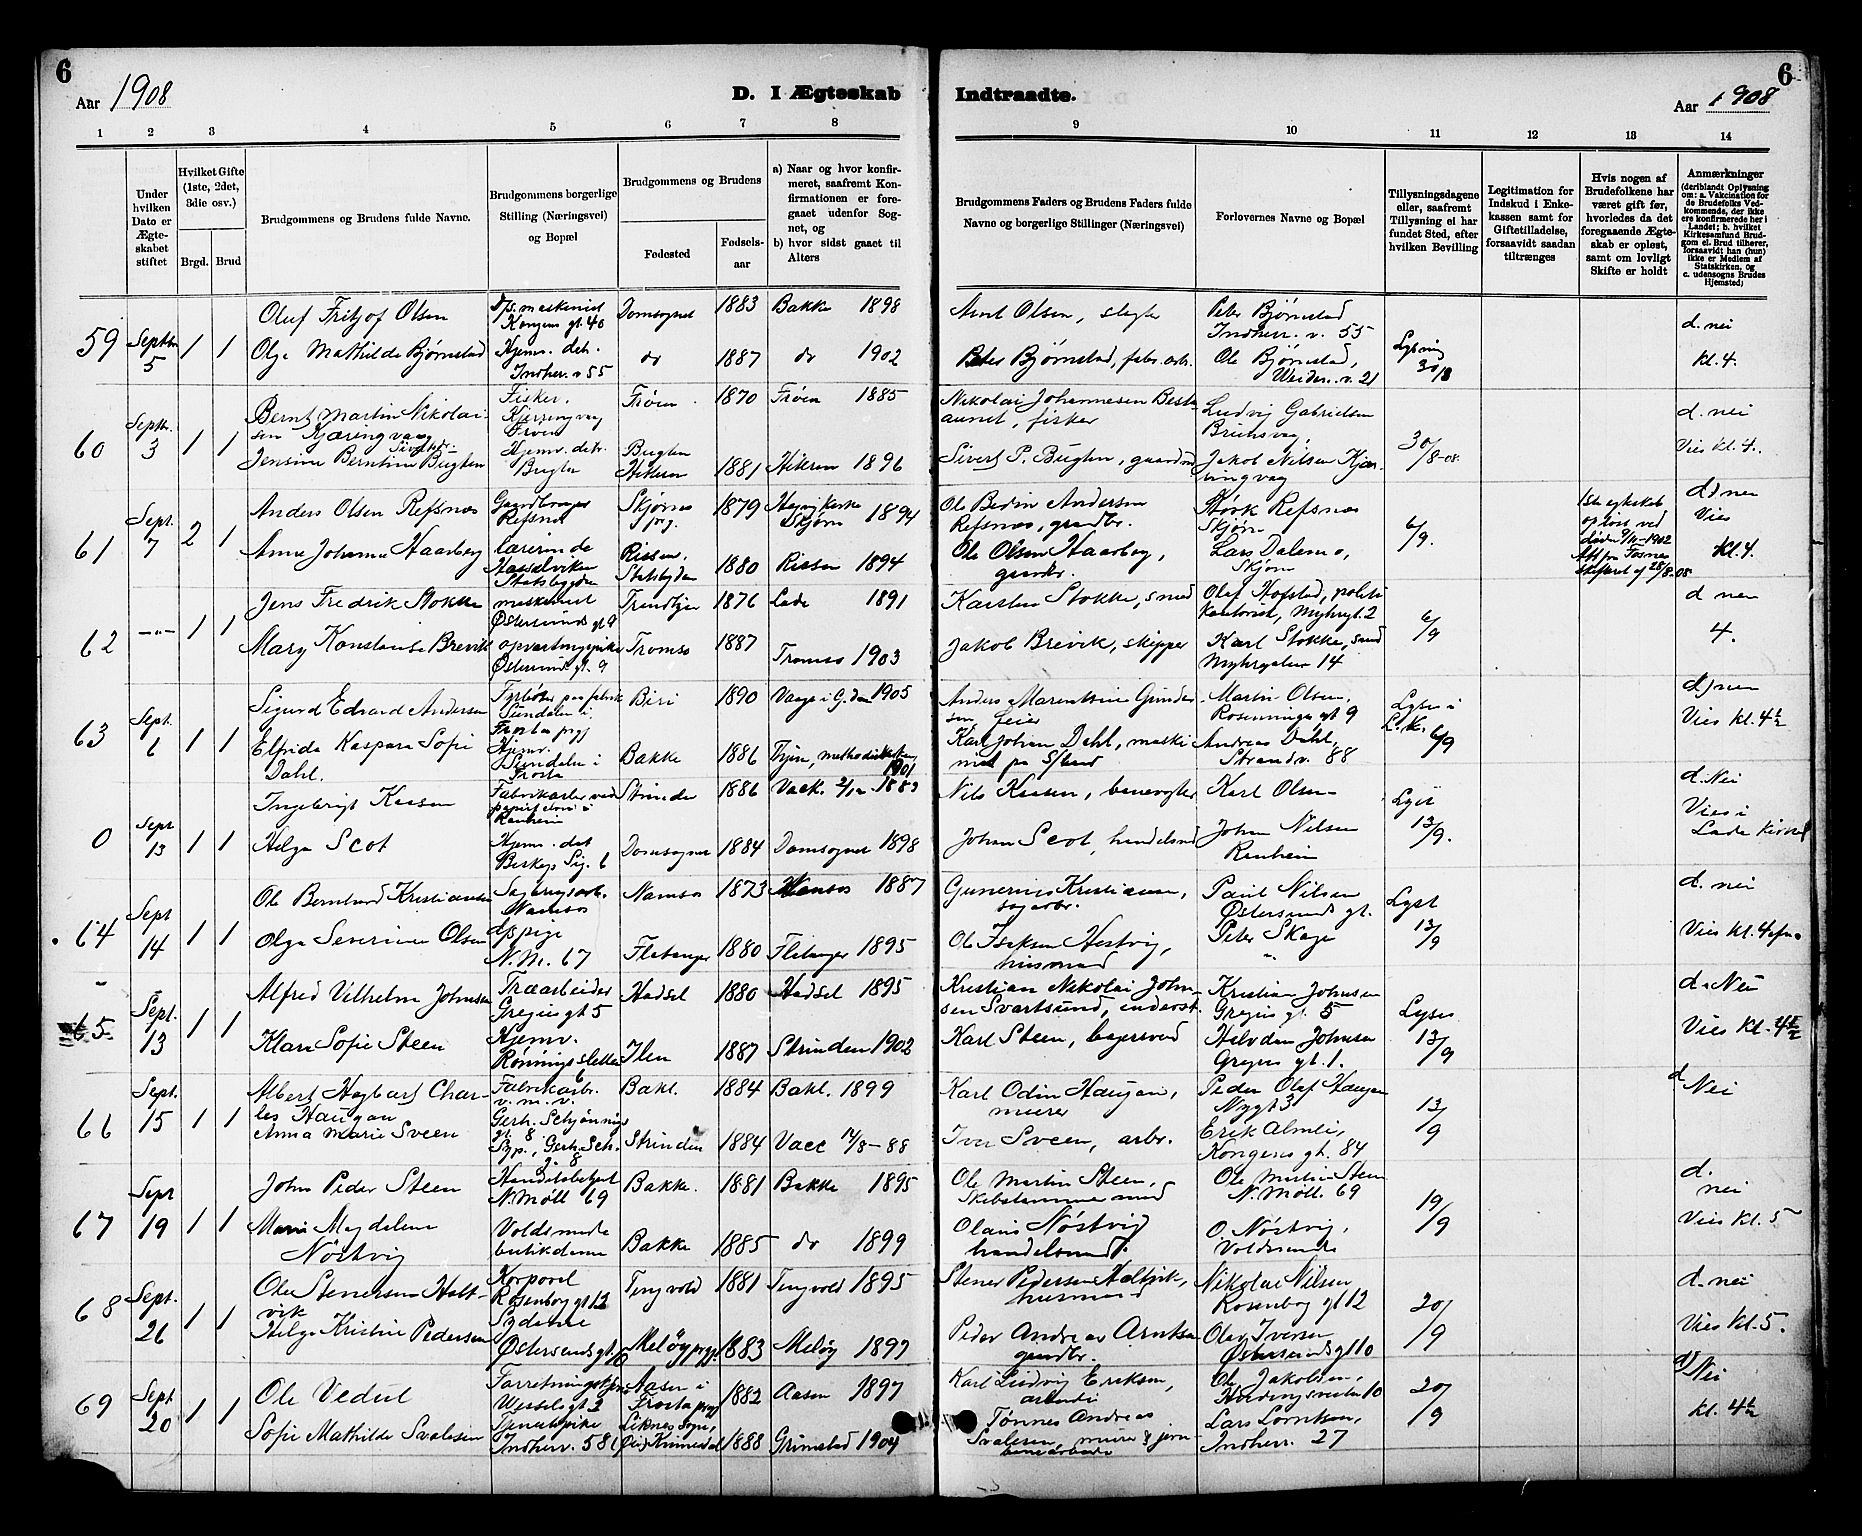 6
Aar 1908
D. I Ægteskab
Indtraadte.
Aar 1908
6
1 2 3 4 5 6 7 8 9 10 11 12 13 14
Under hvilken Dato er Ægteskabet stiftet
Hvilket Gifte (1ste, 2det, 3die osv.)
Brgd. Brud
Brudgommens og Brudens fulde Navne.
Brudgommens borgerlige Stilling (Næringsvei) og Bopæl
Brudgommens og Brudens
Fødested
Fødselsaar
a) Naar og hvor konfirmeret, saafremt Konfirmationen er foregaaet udenfor Sognet, og
b) hvor sidst gaaet til Alters
Brudgommens Faders og Brudens Faders fulde Navne og borgerlige Stillinger (Næringsvei)
Forlovernes Navne og Bopæl
Tillysningsdagene eller, saafremt Tillysning ei har fundet Sted, efter hvilken Bevilling
Legitimation for Indskud i Enkekassen samt for Giftetilladelse, forsaavidt saadan tiltrænges
Hvis nogen af Brudefolkene har været gift før, hvorledes da det foregaaende Ægteskab er opløst, samt om lovligt Skifte er holdt
Anmærkninger
(deriblandt Oplysning om: a. Vakcination for de Brudefolks Vedkommende, der ikke ere konfirmerede her i Landet; b. hvilket Kirkesamfund Brudgom el. Brud tilhører, forsaavidt han (hun) ikke er Medlem af Statskirken, og c. udensogns Brudes Hjemsted)
59 Septbr 5 1 1
Oluf Fritjof Olsen Dps. maskinist Kongens gt. 40 Domsognet 1883 Bakke 1898 Arnt Olsen, Peter Bjørnstad Indherr. v. 55 d. nei
Olga Mathilde Bjørnstad Hjemv. det. Indher. v 55 do 1887 do 1902 Peter Bjørnstad, fabr. arb. Ole Bjørnstad, Weiden. v. 21 Lysning 30/8 kl. 4.
60 Septbr. 3 1 1
Bernt Martin Nikolaisen Kjæringvaag Fisker. Kjerringvaag Frøien Frøien 1870 Frøien 1885 Nikolai Johannesen fisker Ludvig Gabrielsen d. nei
Jensine Berntine Sivertsdr. Bugten Hjemv. det. Bugten Bugten Hitteren 1881 Hitteren 1896 Sivert P. Bugten, Jakob Nilsen Kjæringvaag 30/8-08. Vies kl. 4.
61 Sept. 7 2 1
Anders Olsen Refsnæs Gaardbruger Refsnæs Skjørns prg. 1879 Skjørn 1894 Ole Andersen Refsnæs, grandbr. Størk Refsnæs Skjørn d) nei
Anna Johanna Haarberg lærerinde Hasselviken Statsbygden Rissen, Statsbygden 1880 Rissen 1894 Ole Olsen Haarberg, grandbr. Lars Dalemo, Skjørn 6/9. Vies kl. 4.
1ste egteskab opløst ved døden 1902 Att fra Fosnes skifteret af 28/8-08
62 —"— 1 1
Jens Fredrik Stokke maskinist Østersunds gt 9 Trondhjem 1876 Lade 1891 Karsten Stokke, smed Olaf Hofstad, politikonstabel, Myhrgt. 2 d nei
Mary Konstanse Brevik opvartningspike Østersunds gt. 9 Tromsø 1887 Tromsø 1903 Jakob Brevik, skipper Karl Stokke, smed Myhrgaten 14 6/9 4.
63 Sept. 6 1 1
Sigurd Edvard Andersen Fyrbøter paa fabrik Biri 1890 Vaage i G. dal 1905 Anders feier Martin Olsen, Rosenborgs gt 9 Lyst i L. K. 6/9 d) nei
Elfrida Kaspara Sofie Dahl. Hjemv. Frosta Bakke 1886 methodistkirken, 1901 Karl Johan Dahl, maskinist Andreas Dahl, Strandv. 88 Vies kl. 4½
0 Sept 13 1 1
Ingebrigt Kaasen Fabrikarb. ved Ranheim Strinden 1886 Vacc. 1889 Nils Kaasen, banevogter Karl Olsen d. Nei
Helga Scot Hjemv. det Domsognet 1884 Domsognet 1898 Johan Scot, handelsmd John Nilsen Ranheim Lyst 13/9. Vies i Lade kirke
64 Sept 14 1 1
Ole Bernhard Kristiansen Sagbrugsarb. Namsos Namsos 1873 Namsos 1887 Gunerius Kristiansen, sagarbr. Paul Nilsen Østersunds gt. Lyst d. nei
Olga Severine Olsen Dp. pige N. M. 67 Flatanger 1880 Flatanger 1895 Ole Hestvig, husmand Peter Skage " 13/9 Vies kl. 4
65 Sept. 13 1 1
Alfred Vilhelm Johnsen Træarbeider Gregus gt 5 Hadsel 1880 Hadsel 1895 Kristian Nikolai Johnsen Svartsund, inderst Kristian Johnsen Gregus gt. 5 Lyses d. Nei
Klara Sofie Steen Hjemv. Rønningsletten Ilen 1887 Strinden 1902 Karl Steen, Halvdan Johnsen Gregus gt. 1. 13/9 Vies kl. 4½
66 Sept. 15 1 1
Albert Hagbart Charles Haugan Fabrikarb. v. m. v. Gerh. Schjønings gt. 8 Bakl. 1884 Bakl. 1899 Karl Odin Haugan, murer Peder Olaf Haugan Nygt 3 d Nei
Anna Marie Sveen Syp., Gerh. Sch. g. 8 Strinden 1884 Vacc 14/8-88 Iver Sveen, arbr. Erik Almli, Kongens gt. 84 13/9
67 Sept 19 1 1
John Peder Steen Handelsbetjent N. Møll 69 Bakke. 1881 Bakke 1895 Ole Martin Steen, Skibstømmermand Ole Martin Steen N. Møll. 69 d. nei
Marie Magdalena Nøstvig Voldsminde butikdame Bakke 1885 do 1899 Olaus Nøstvig handelsmand. O. Nøstvig, Voldsminde 19/9 Vies kl. 5
68 Sept. 26 1 1
Ole Stenersen Holtvik Korporal Rosenborg gt 12 Tingvold 1881 Tingvold 1895 Stener Pedersen Holtvik, husmand Nikolai Nilsen Rosenborg gt 12 d. nei
Helga Kristine Pedersen Sydame Østersundsgt. 10 Meløy prgj. 1883 Meløy 1897 Peder Andreas Arntsen grandbr. Olav Iversen Østersundsgt 10 20/9 Vies kl. 5.
69 Sept 20 1 1
Ole Vedul Forretningsbetj. Wesselsgt 2 Aasen i Frosta prgj 1882 Aasen 1897 Karl Ludvig Eriksen, Ole Jakobsen, 10 d) Nei
Sofie Mathilde Svalesen Tjenestpike Indherr. v. 58 Liknes sogn, Kvinesdal 1888 Grimstad 1904 Tønnes Andreas Svalesen, murer & jernbanearbeide Lars Lorntsen, Indherr. 27 20/9 kl. 4½